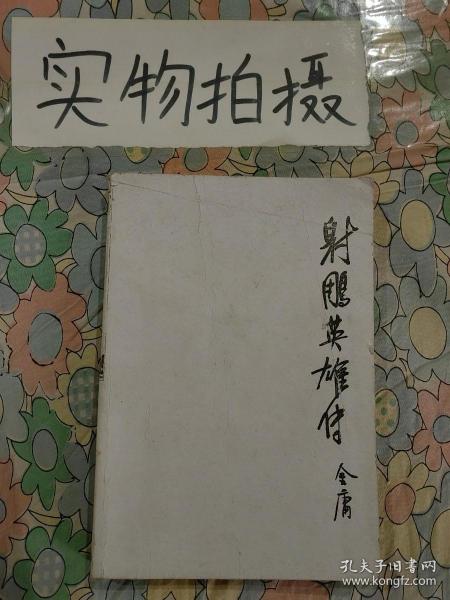 实物拍摄
射鵰英雄传
金庸
孔夫子旧书网
www.kongfz.com